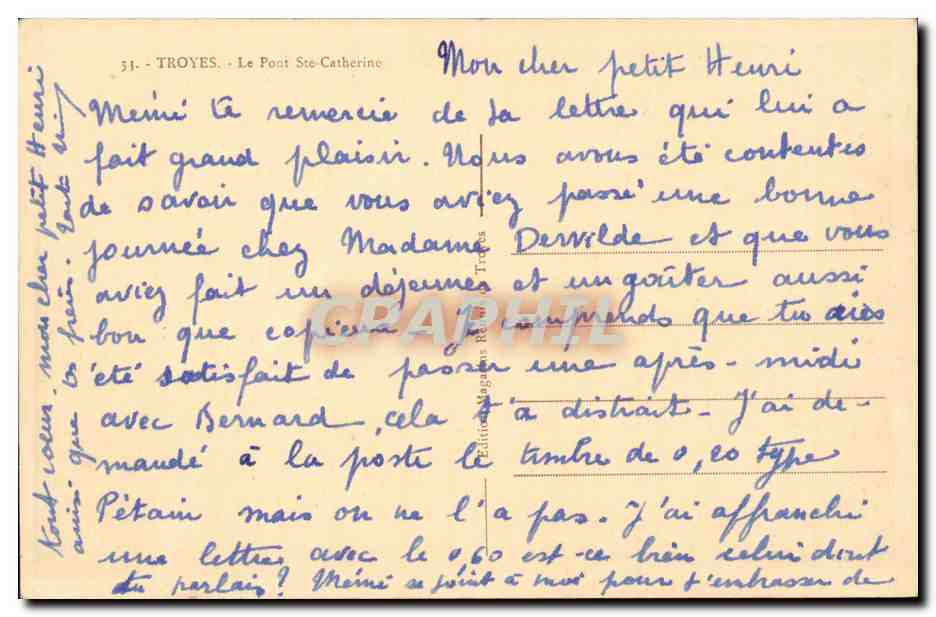 53. - TROYES. - Le Pont Ste-Catherine
Mon cher petit Henri
Mémé te remercie de ta lettre qui lui a
fait grand plaisir. Nous avons été contentes
de savoir que vous aviez passé une bonne
journée chez Madame Dervilde et que vous
aviez fait un déjeuner et un goûter aussi
bon que copieux. Je comprends que tu aies
été satisfait de passer une après-midi
avec Bernard, cela t'a distrait. J'ai de-
mandé à la poste le timbre de 0,20 type
Pétain mais on ne l'a pas. J'ai affranchi
une lettre avec le 0,60 est-ce bien celui dont
tu parlais? Mémé se joint à moi pour t'embrasser de
tout coeur, mon cher petit Henri
ainsi que tes frères.
Editions Magasins Réunis Troyes
CPAPHIL